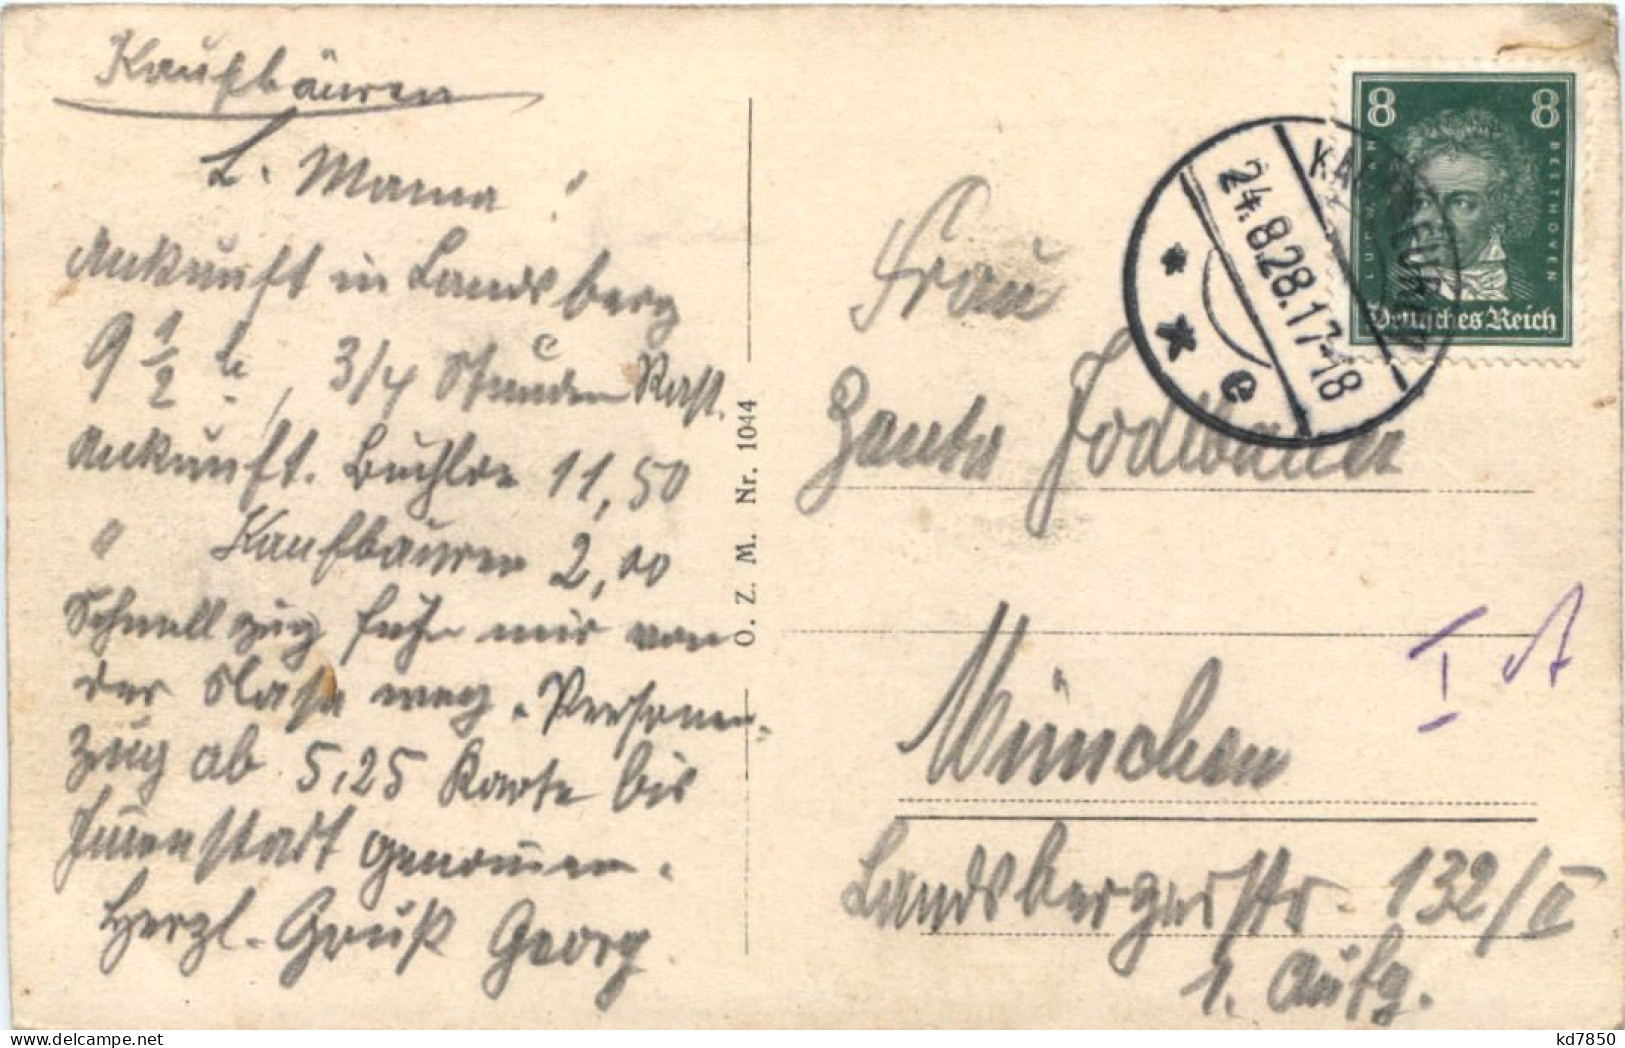 Kaufbäuren
L. Mama!
Ankunft in Landsberg
9 1/2 h, 3/4 Stunden Rast.
Ankunft. Buchloe 11,50
" Kaufbäuren 2,00
Schnellzug fuhr mir von
der Nase weg. Personen-
zug ab 5,25 Karte bis
Immenstadt genommen.
Herzl. Gruß Georg.
O. Z. M. Nr. 1044
Frau
Jodlbauer
München
Landsbergerstr. 132/II
1. Aufg.
I A
8 8
LUDW. VAN BEETHOVEN
Deutsches Reich
KAUFBEUREN
24.8.28.17-18
* * e
kd7850